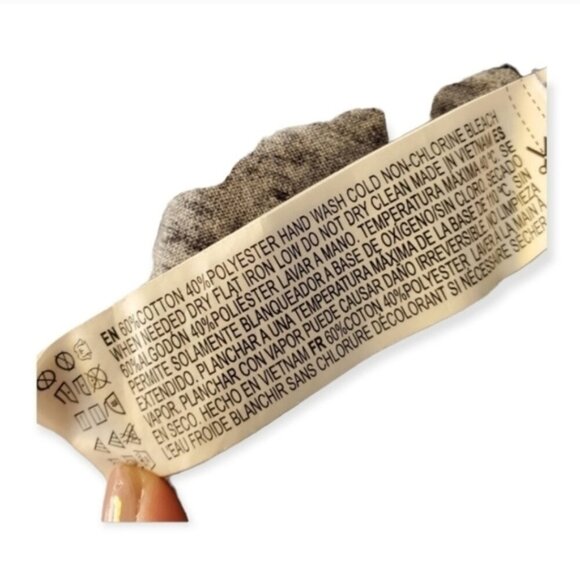 EN 60%COTTON 40%POLYESTER HAND WASH COLD NON-CHLORINE BLEACH
WHEN NEEDED DRY FLAT IRON LOW DO NOT DRY CLEAN MADE IN VIETNAM ES
60%ALGODÓN 40%POLIÉSTER LAVAR A MANO. TEMPERATURA MÁXIMA 40°C. SE
PERMITE SOLAMENTE BLANQUEADOR A BASE DE OXÍGENO/SIN CLORO. SECADO
EXTENDIDO. PLANCHAR A UNA TEMPERATURA MÁXIMA DE LA BASE DE 110°C, SIN
VAPOR. PLANCHAR CON VAPOR PUEDE CAUSAR DAÑO IRREVERSIBLE. NO LIMPIEZA
EN SECO. HECHO EN VIETNAM FR 60%COTON 40%POLYESTER. LAVER A LA MAIN À
L'EAU FROIDE BLANCHIR SANS CHLORURE DÉCOLORANT SI NÉCESSAIRE SÉCHER